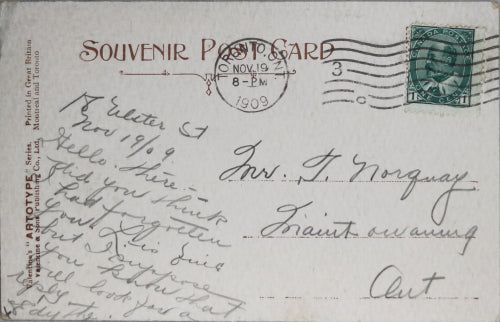 SOUVENIR POST CARD
TORONTO, ONT.
NOV 19
8 - PM
1909
3
CANADA POSTAGE
1 1
Valentine's "ARTOTYPE" Series. Printed in Great Britain
Valentine & Sons Publishing Co., Ltd. Montreal and Toronto
18 Ulster St
Nov 19/09
Hello there -
Did you think
had forgotten
you
but I suppose
you know that
will look for a
reply
Mr. T. Norquay
Manitowaning
Ont